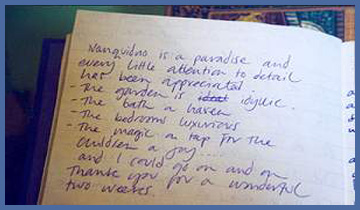 Nanquidno is a paradise and
every little attention to detail
has been appreciated.
- The garden is ideal idyllic.
- The bath a haven
- The bedrooms luxurious
- The magic a tap for the
children a joy.....
and I could go on and on
Thank you for a wonderful
two weeks